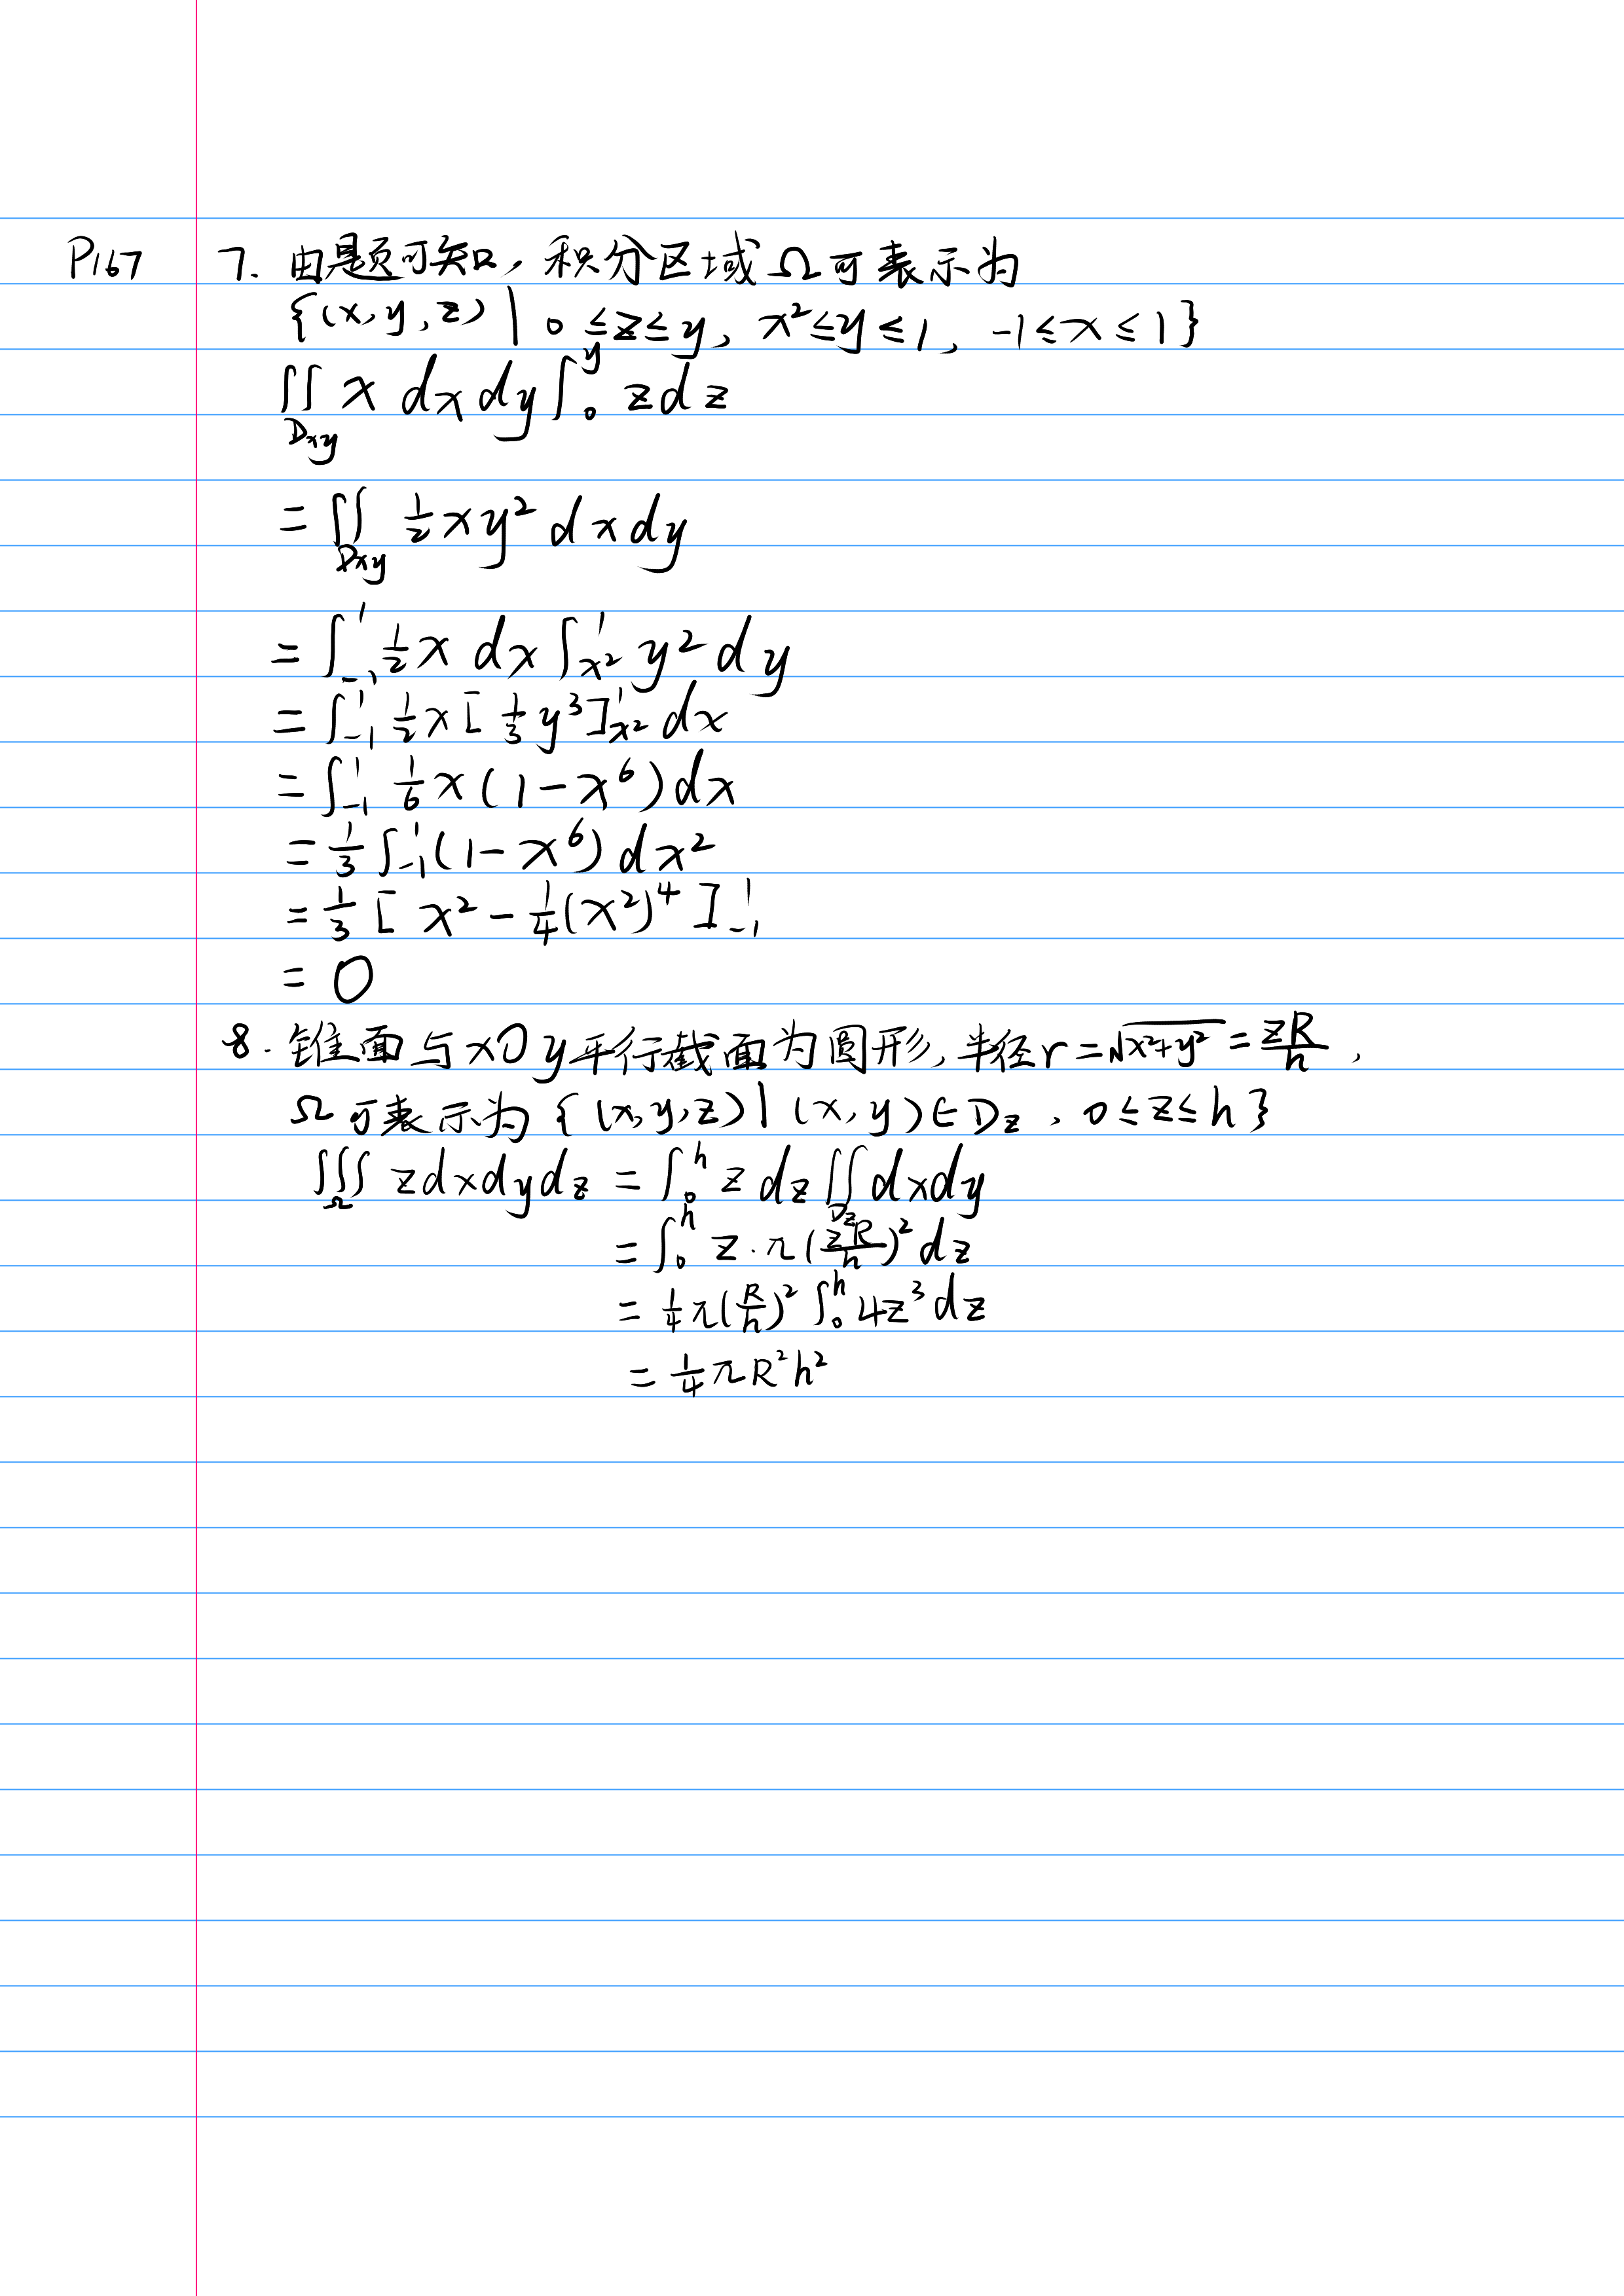 P167 7. 由题可知, 积分区域Ω可表示为
{(x,y,z) | 0≤z≤y, x²≤y≤1, -1≤x≤1}
∬_{Dxy} x dx dy ∫₀^y z dz
= ∬_{Dxy} ½xy² dx dy
= ∫₋₁¹ ½x dx ∫_{x²}^1 y² dy
= ∫₋₁¹ ½x [⅓y³]_{x²}^1 dx
= ∫₋₁¹ ⅙x(1-x⁶)dx
= ⅓ ∫₋₁¹ (1-x⁶) dx²
= ⅓ [x² - ¼(x²)⁴]₋₁¹
= 0
8. 锥面与xOy平行截面为圆形, 半径r=√(x²+y²) = zR/h,
Ω可表示为{(x,y,z) | (x,y)∈D_z, 0≤z≤h}
∭_Ω z dx dy dz = ∫₀^h z dz ∬_{D_z} dx dy
= ∫₀^h z·π(zR/h)² dz
= ¼π(R/h)² ∫₀^h 4z³ dz
= ¼πR²h²